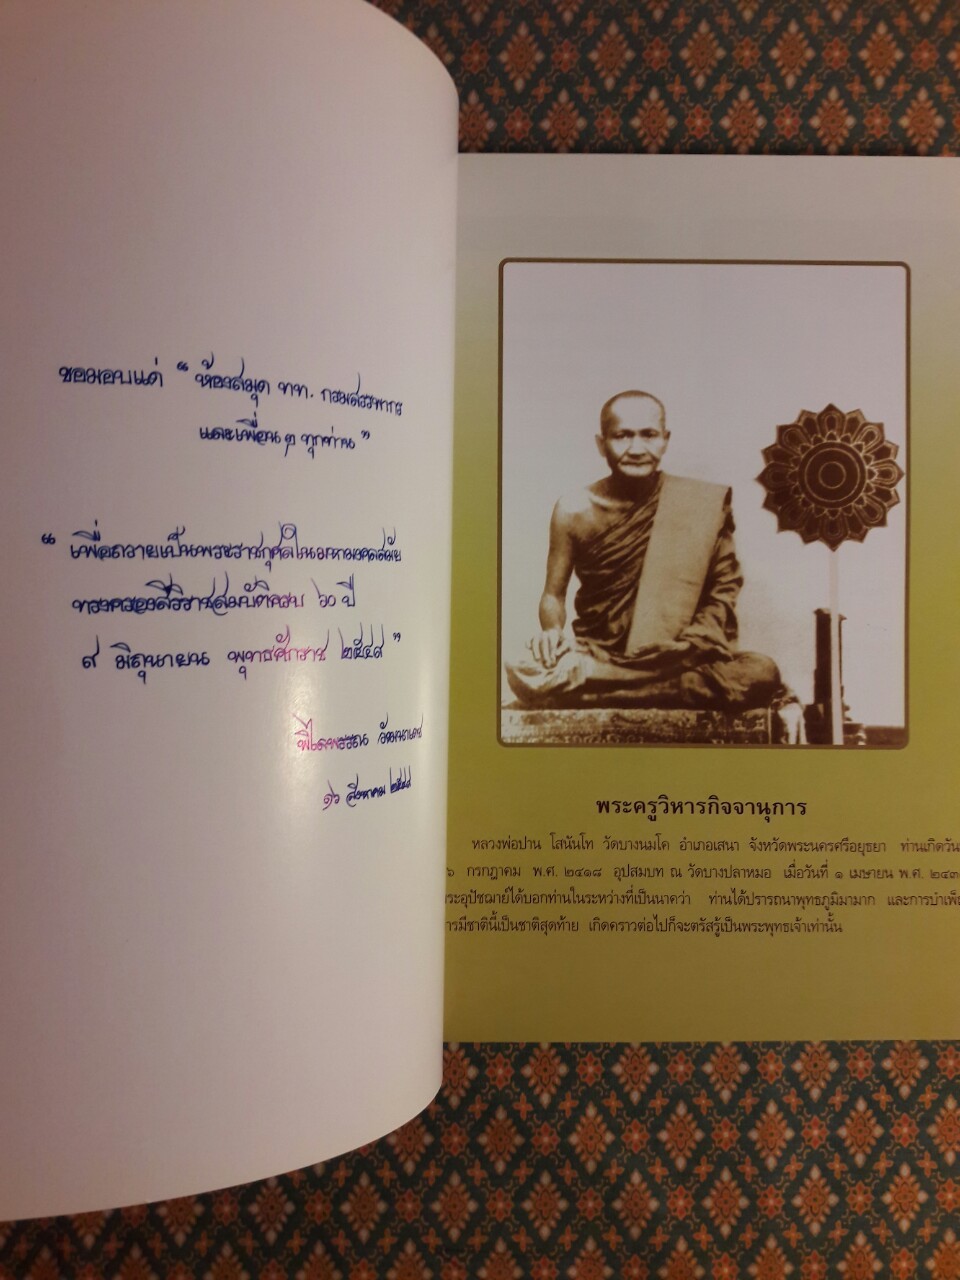 ขอมอบแด่ “ ห้องสมุด ทท. กรมสรรพากร
และเพื่อน ๆ ทุกท่าน ”
“ เพื่อถวายเป็นพระราชกุศลในมหามงคลสมัย
ทรงครองสิริราชสมบัติครบ ๖๐ ปี
๙ มิถุนายน พุทธศักราช ๒๕๔๙ ”
๑๖ สิงหาคม ๒๕๔๙
พระครูวิหารกิจจานุการ
หลวงพ่อปาน โสนันโท วัดบางนมโค อำเภอเสนา จังหวัดพระนครศรีอยุธยา ท่านเกิดวัน
๖ กรกฎาคม พ.ศ. ๒๔๑๘ อุปสมบท ณ วัดบางปลาหมอ เมื่อวันที่ ๑ เมษายน พ.ศ. ๒๔๓
ระอุปัชฌาย์ได้บอกท่านในระหว่างที่เป็นนาคว่า ท่านได้ปรารถนาพุทธภูมิมามาก และการบำเพ็
ารมีชาตินี้เป็นชาติสุดท้าย เกิดคราวต่อไปก็จะตรัสรู้เป็นพระพุทธเจ้าเท่านั้น